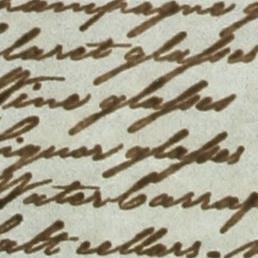 hampagne g
laret glaſses
Wine glaſses
iquor glaſses
Water Carraf
alt cellars